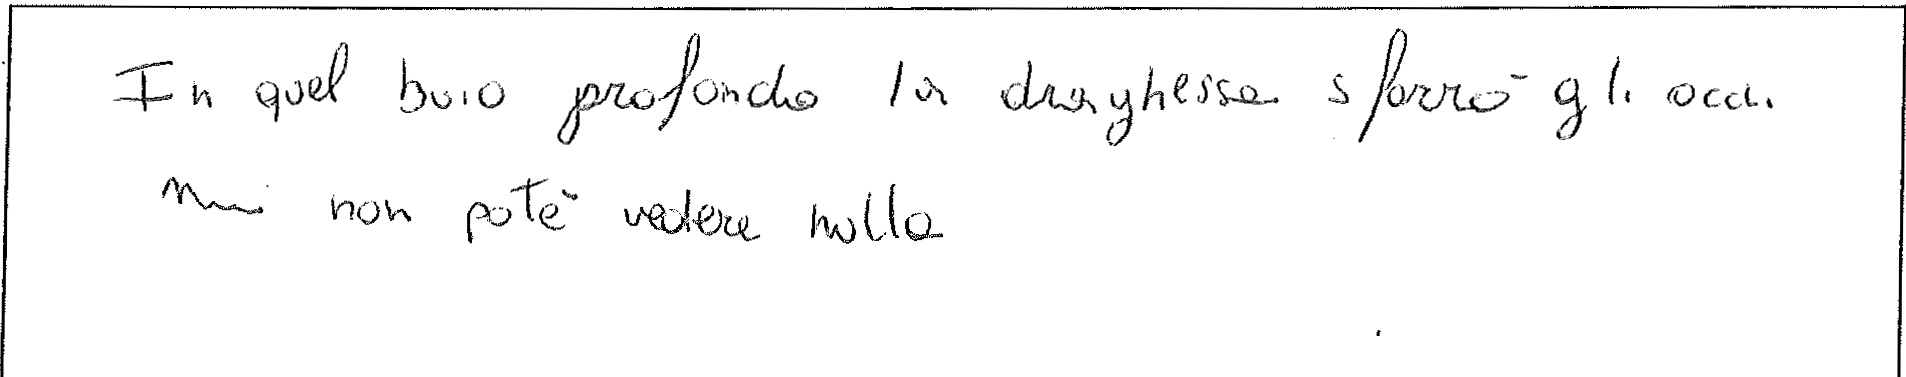 In quel buio profondo la draghessa sforrò gli occi
ma non potè vedere nulla